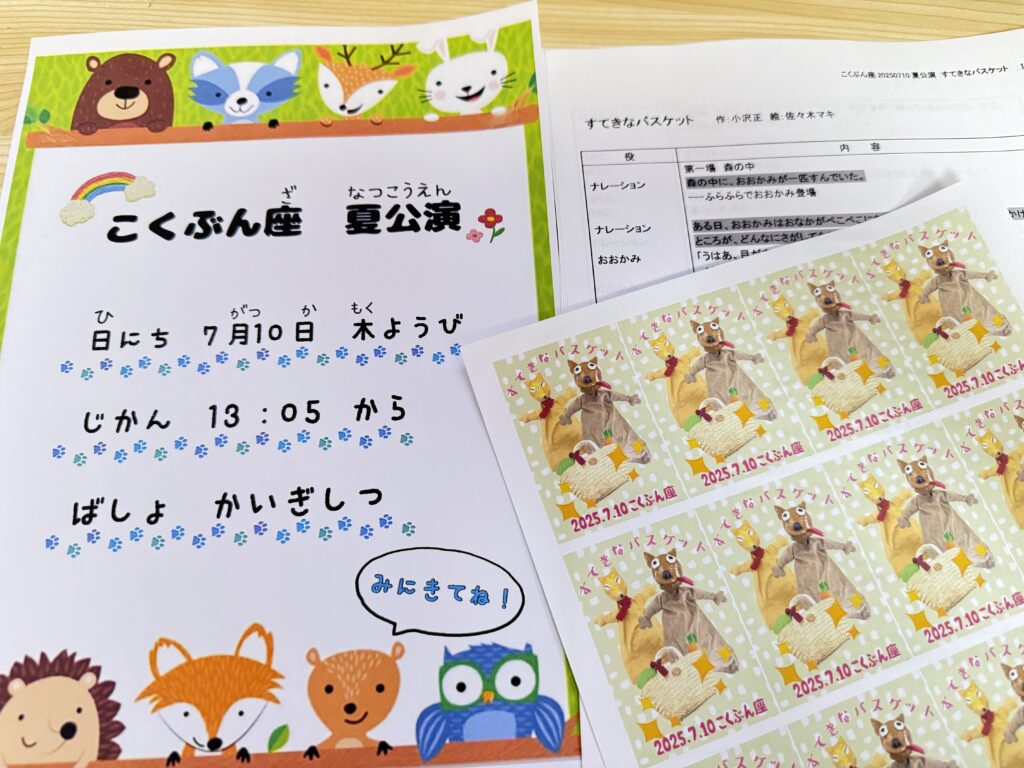 ざ なつこうえん
こくぶん座 夏公演
ひ がつ か もく
日にち 7月10日 木ようび
じかん 13:05 から
ばしょ かいぎしつ
みにきてね!
こくぶん座 20250710 夏公演 すてきなバスケット
すてきなバスケット 作:小沢正 絵:佐々木マキ
役 内容
第一場 森の中
ナレーション 森の中に、おおかみが一匹すんでいた。
──ふらふらでおおかみ登場
ナレーション ある日、おおかみはおなかがぺこぺこに
ところが、どんなにさがして
おおかみ 「うはあ、目が
すてきなバスケット
2025.7.10 こくぶん座
すてきなバスケット
2025.7.10 こくぶん座
すてきなバスケット
2025.7.10 こくぶん座
すてきなバスケット
2025.7.10 こくぶん座
すてきなバスケット
2025.7.10 こくぶん座
すてきなバスケット
2025.7.10 こくぶん座
すてきなバスケット
2025.7.10 こくぶん座
すてきな
すてきなバスケット
すてきなバスケット